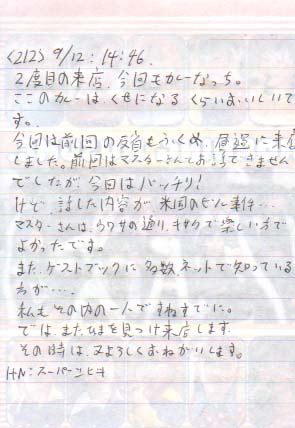 <212> 9/12:14:46.
2度目の来店、今回もカレーなっち。
ここのカレーは、くせになるくらいおいしいで
す。
今回は前回の反省もふくめ、昼過に来店
しました。前回はマスターさんとお話できません
でしたが、今回はバッチリ!
けど、話した内容が米国のビル事件…
マスターさんは、ウワサの通り、キサクで楽しい方で
よかったです。
また、ゲストブックに多数ネットで知っている
方が….
私もその内の一人ですねすでに。
では、またひまを見つけ来店します.
その時は、又よろしくおねがいします。
HN:スーパーツヒキ